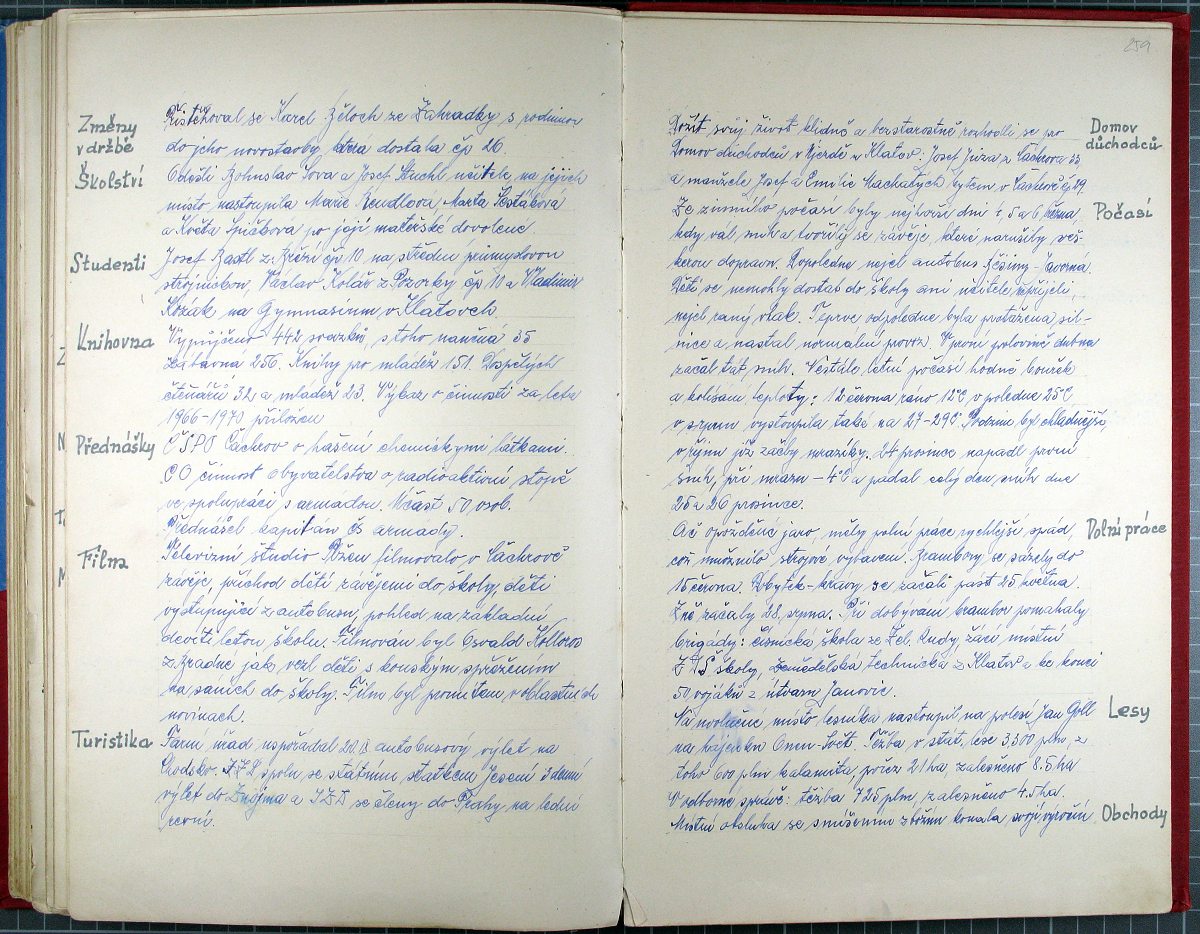 Změny
v držbě
Přistěhoval se Karel Žěloch ze Zahradky s rodinou
do jeho novostavby která dostala čp 26.
Školství
Odešli Bohuslav Sova a Josef Stuchl učitele na jejich
místo nastoupila Marie Rendlová Marta Šestáková
a Květa Špičkova po její mateřské dovolené.
Studenti
Josef Bastl z Březí čp 10 na střední průmyslovou
strojnickou, Václav Kolář z Pozorky čp 10 a Vladimír
Kozák na Gymnasium v Klatovech.
Knihovna
Vypůjčeno 442 svazků, s toho naučná 35
zábavná 256. Knihy pro mládež 151. Dospělých
čtenářů 32 a mládež 23. Výkaz o činnosti za leta
1966-1970 přiložen
Přednášky
ČSPO Čachrov o hašení chemickými látkami.
CO činnost obyvatelstva o radioaktivní stopě
ve spolupráci s armadou. Učást 50 osob.
Přednášel kapitán čs armady.
Film
Televizní studio Plzeň filmovalo v Čachrově
závěje, příchod dětí závějemi do školy, děti
vystupující z autobusu, pohled na základní
devíti letou školu. Filmován byl Osvald Kollross
z Bradné jak vezl děti s koňským spřežením
na saních do školy. Film byl promítem v oblastních
novinách.
Turistika
Farní úřad uspořádal 20.8 autobusový vylet na
Chodsko. JZD spolu se státním statkem Jesení 3 denní
výlet do Znojma a JZD se členy do Prahy na lední
revui.
259
Dožít svůj život klidně a bezstarostně rozhodli se pro
Domov
důchodců
Domov důchodců v Újezdě u Klatov: Josef Jirza z Čachrova 33
a manžele Josef a Emilie Machatých bytem v Čachrově čp 29.
Počasí
Ze zimního počasí byly nejhorší dni 4, 5 a 6 března
kdy vál sníh a tvořily se závěje, které narušily veš-
kerou dopravu. Dopoledne nejel autobus Běšiny-Javorná.
Děti se nemohly dostat do školy ani učitele nepřijeli,
nejel raný vlak. Teprve odpoledne byla protažena sil-
nice a nastal normalní provoz. V první polovině dubna
začal tát sníh. Nestálé letní počasí hodně bouřek
a kolísání teploty: 12 června ráno 12°C v poledne 25°C
v srpnu vystoupila také na 27-29°C. Podzim byl chladnější
v říjnu již začly mraziky. 24 prosince napadl první
sníh, při mrazu -4°C a padal celý den sníh dne
25 a 26 prosince.
Polní práce
Ač opožděné jaro, měly polní práce rychlejší spád,
což umožnilo strojové vybavení. Brambory se sázely do
15 června. Dobytek-krávy se začali past 25 května.
Žně začaly 28. srpna. Při dobývání brambor pomahaly
brigády: číšnická škola ze Žel. Rudy žáci místní
ZDŠ školy, Zemědělská technická z Klatov a ke konci
50 vojáků z útvaru Janovic.
Lesy
Na uvolněné místo lesníka nastoupil na polesí Jan Goll
na hájenku Onen-Svět. Těžba v stat. lese 3,300 plm, z
toho 600 plm kalamita, pořez 21 ha, zalesněno 8.5 ha
V odborné správě: těžba 725 plm, zalesněno 4.5 ha.
Obchody
Místní obsluha se smíšeným zbožím konala svojí výroční